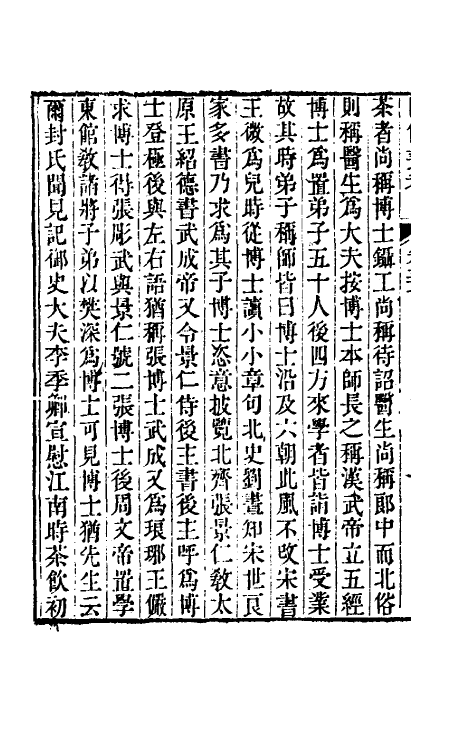 茶者尚稱博士鑷工尚稱待詔醫生尚稱郞中而北俗
則稱醫生爲大夫按博士本師長之稱漢武帝立五經
博士爲置弟子五十人後四方來學者皆詣博士受業
故其時弟子稱師皆曰博士沿及六朝此風不改宋書
王微爲兒時從博士讀小小章句北史劉晝知宋世良
家多書乃求爲其子博士恣意披覽北齊張景仁敎太
原王紹德書武成帝又令景仁侍後主書後主呼爲博
士登極後與左右語猶稱張博士武成又爲琅邪王儼
求博士得張彫武與景仁號二張博士後周文帝置學
東館敎諸將子弟以樊深爲博士可見博士猶先生云
爾封氏聞見記御史大夫李季卿宣慰江南時茶飮初